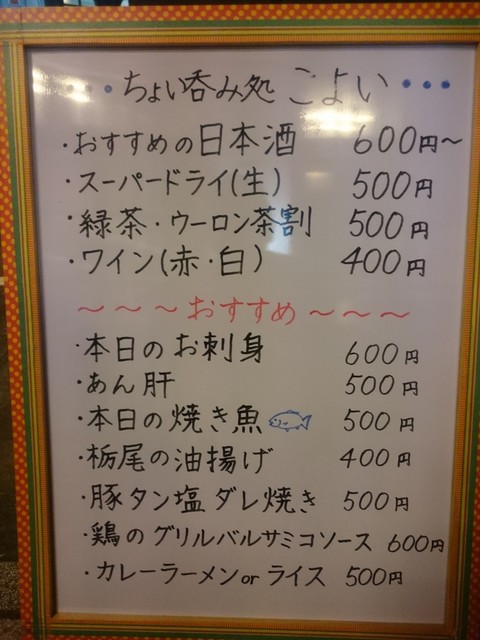 ・・・ちょい呑み処 こよい・・・
・おすすめの日本酒 600円〜
・スーパードライ(生) 500円
・緑茶・ウーロン茶割 500円
・ワイン(赤・白) 400円
〜〜〜おすすめ〜〜〜
・本日のお刺身 600円
・あん肝 500円
・本日の焼き魚 500円
・栃尾の油揚げ 400円
・豚タン塩ダレ焼き 500円
・鶏のグリルバルサミコソース 600円
・カレーラーメンorライス 500円